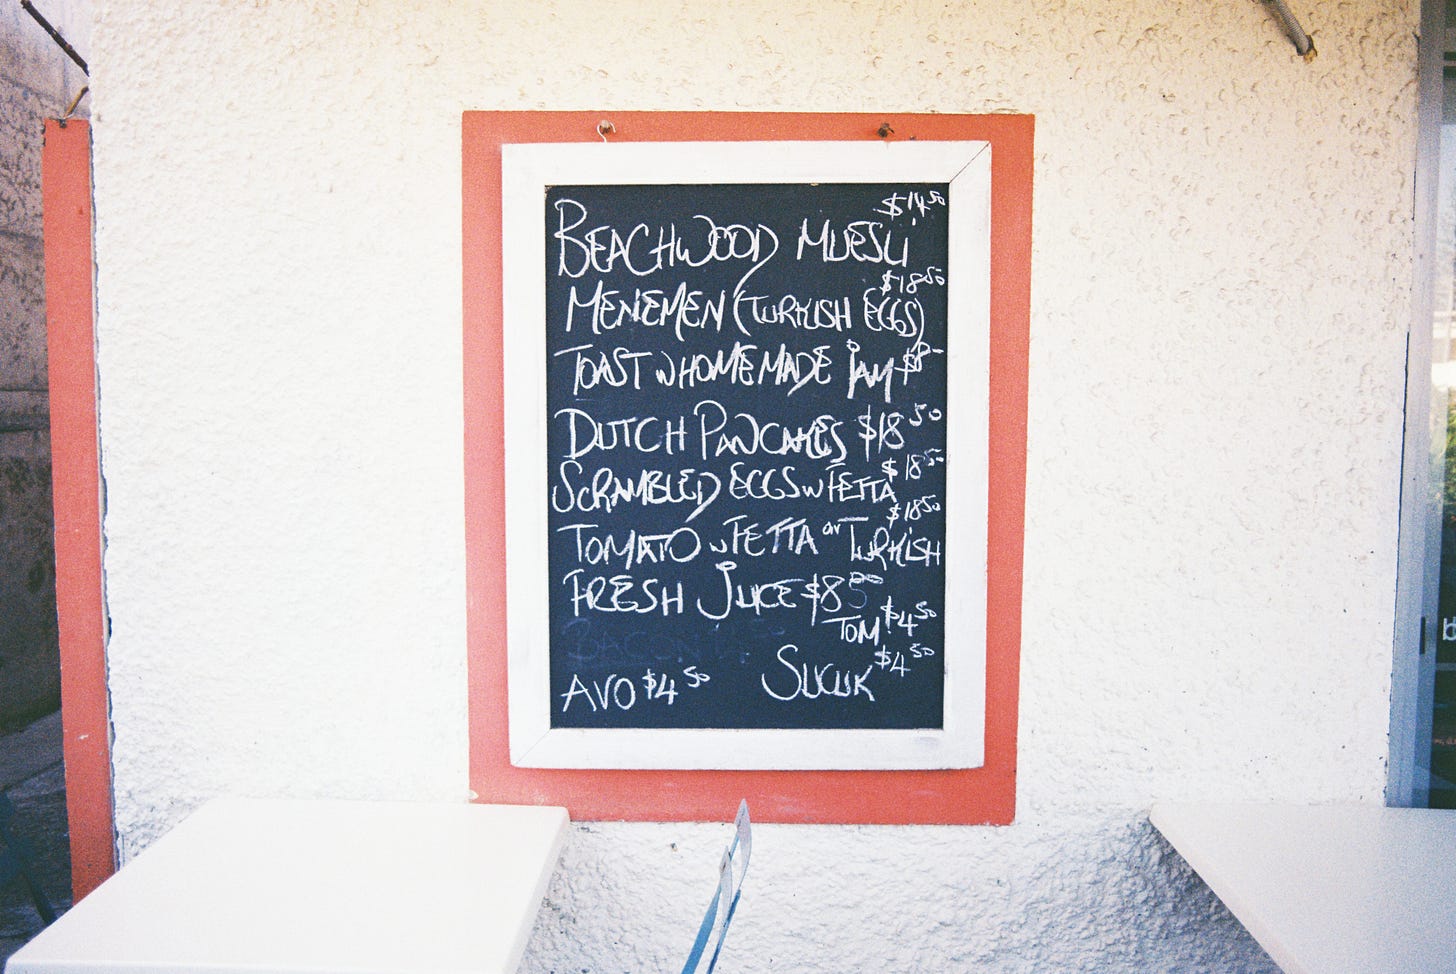 BEACHWOOD MUESLI $14.50
MENEMEN (TURKISH EGGS) $18.50
TOAST w HOMEMADE JAM $8-
DUTCH PANCAKES $18.50
SCRAMBLED EGGS w FETTA $18.50
TOMATO w FETTA or TURKISH $18.50
FRESH JUICE $8.50
TOM $4.50
BACON
AVO $4.50 SUCUK $4.50